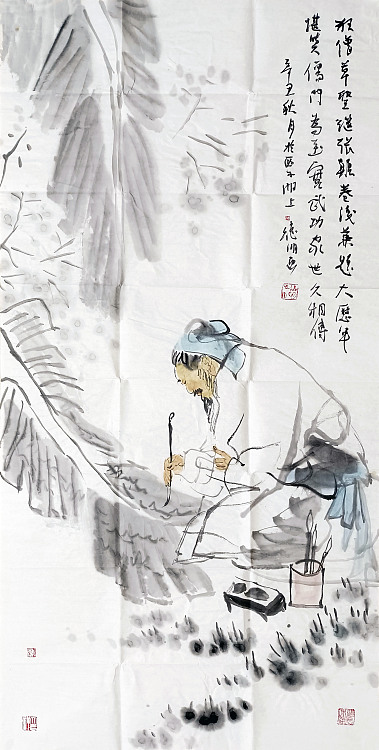 狂僧草聖繼張顛卷後兼題大歷年
堪與儒門為至寶武功家世久相傳
辛丑秋月於西子湖上